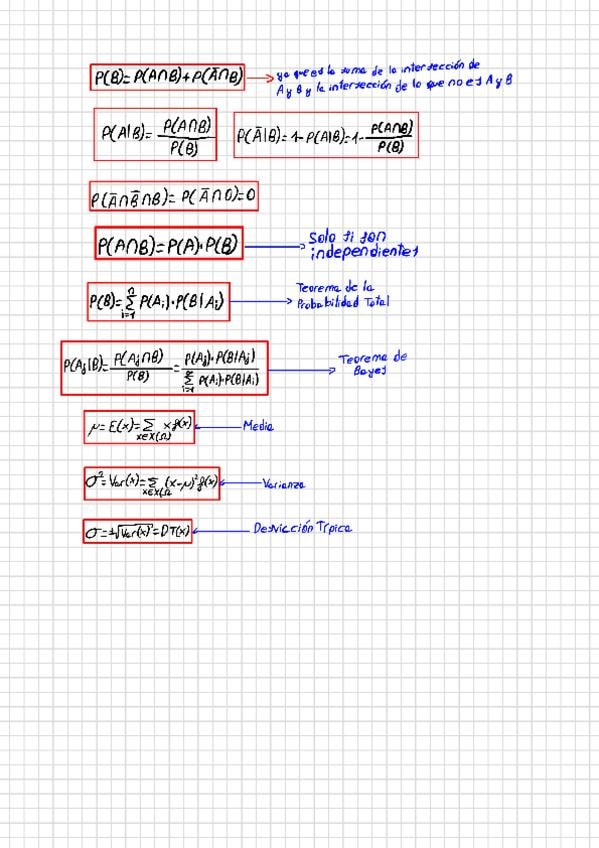 P(B)=P(A∩B)+P(Ā∩B)
ya que es la suma de la intersección de
A y B y la intersección de lo que no es A y B
P(A|B)= P(A∩B)/P(B)
P(Ā|B)=1-P(A|B)=1- P(A∩B)/P(B)
P(Ā∩B̄∩B)=P(Ā∩0)=0
P(A∩B)=P(A)·P(B)
Solo si son
independientes
P(B)=∑ⁿᵢ₌₁ P(Aᵢ)·P(B|Aᵢ)
Teorema de la
Probabilidad Total
P(Aⱼ|B)= P(Aⱼ∩B)/P(B) = P(Aⱼ)·P(B|Aⱼ)/∑ᵢ₌₁ P(Aᵢ)·P(B|Aᵢ)
Teorema de
Bayes
μ=E(x)=∑ x∈X(Ω) x f(x)
Media
σ²=Var(x)=∑ x∈X(Ω (x-μ)² f(x)
Varianza
σ=+√Var(x)=DT(x)
Desviación Típica